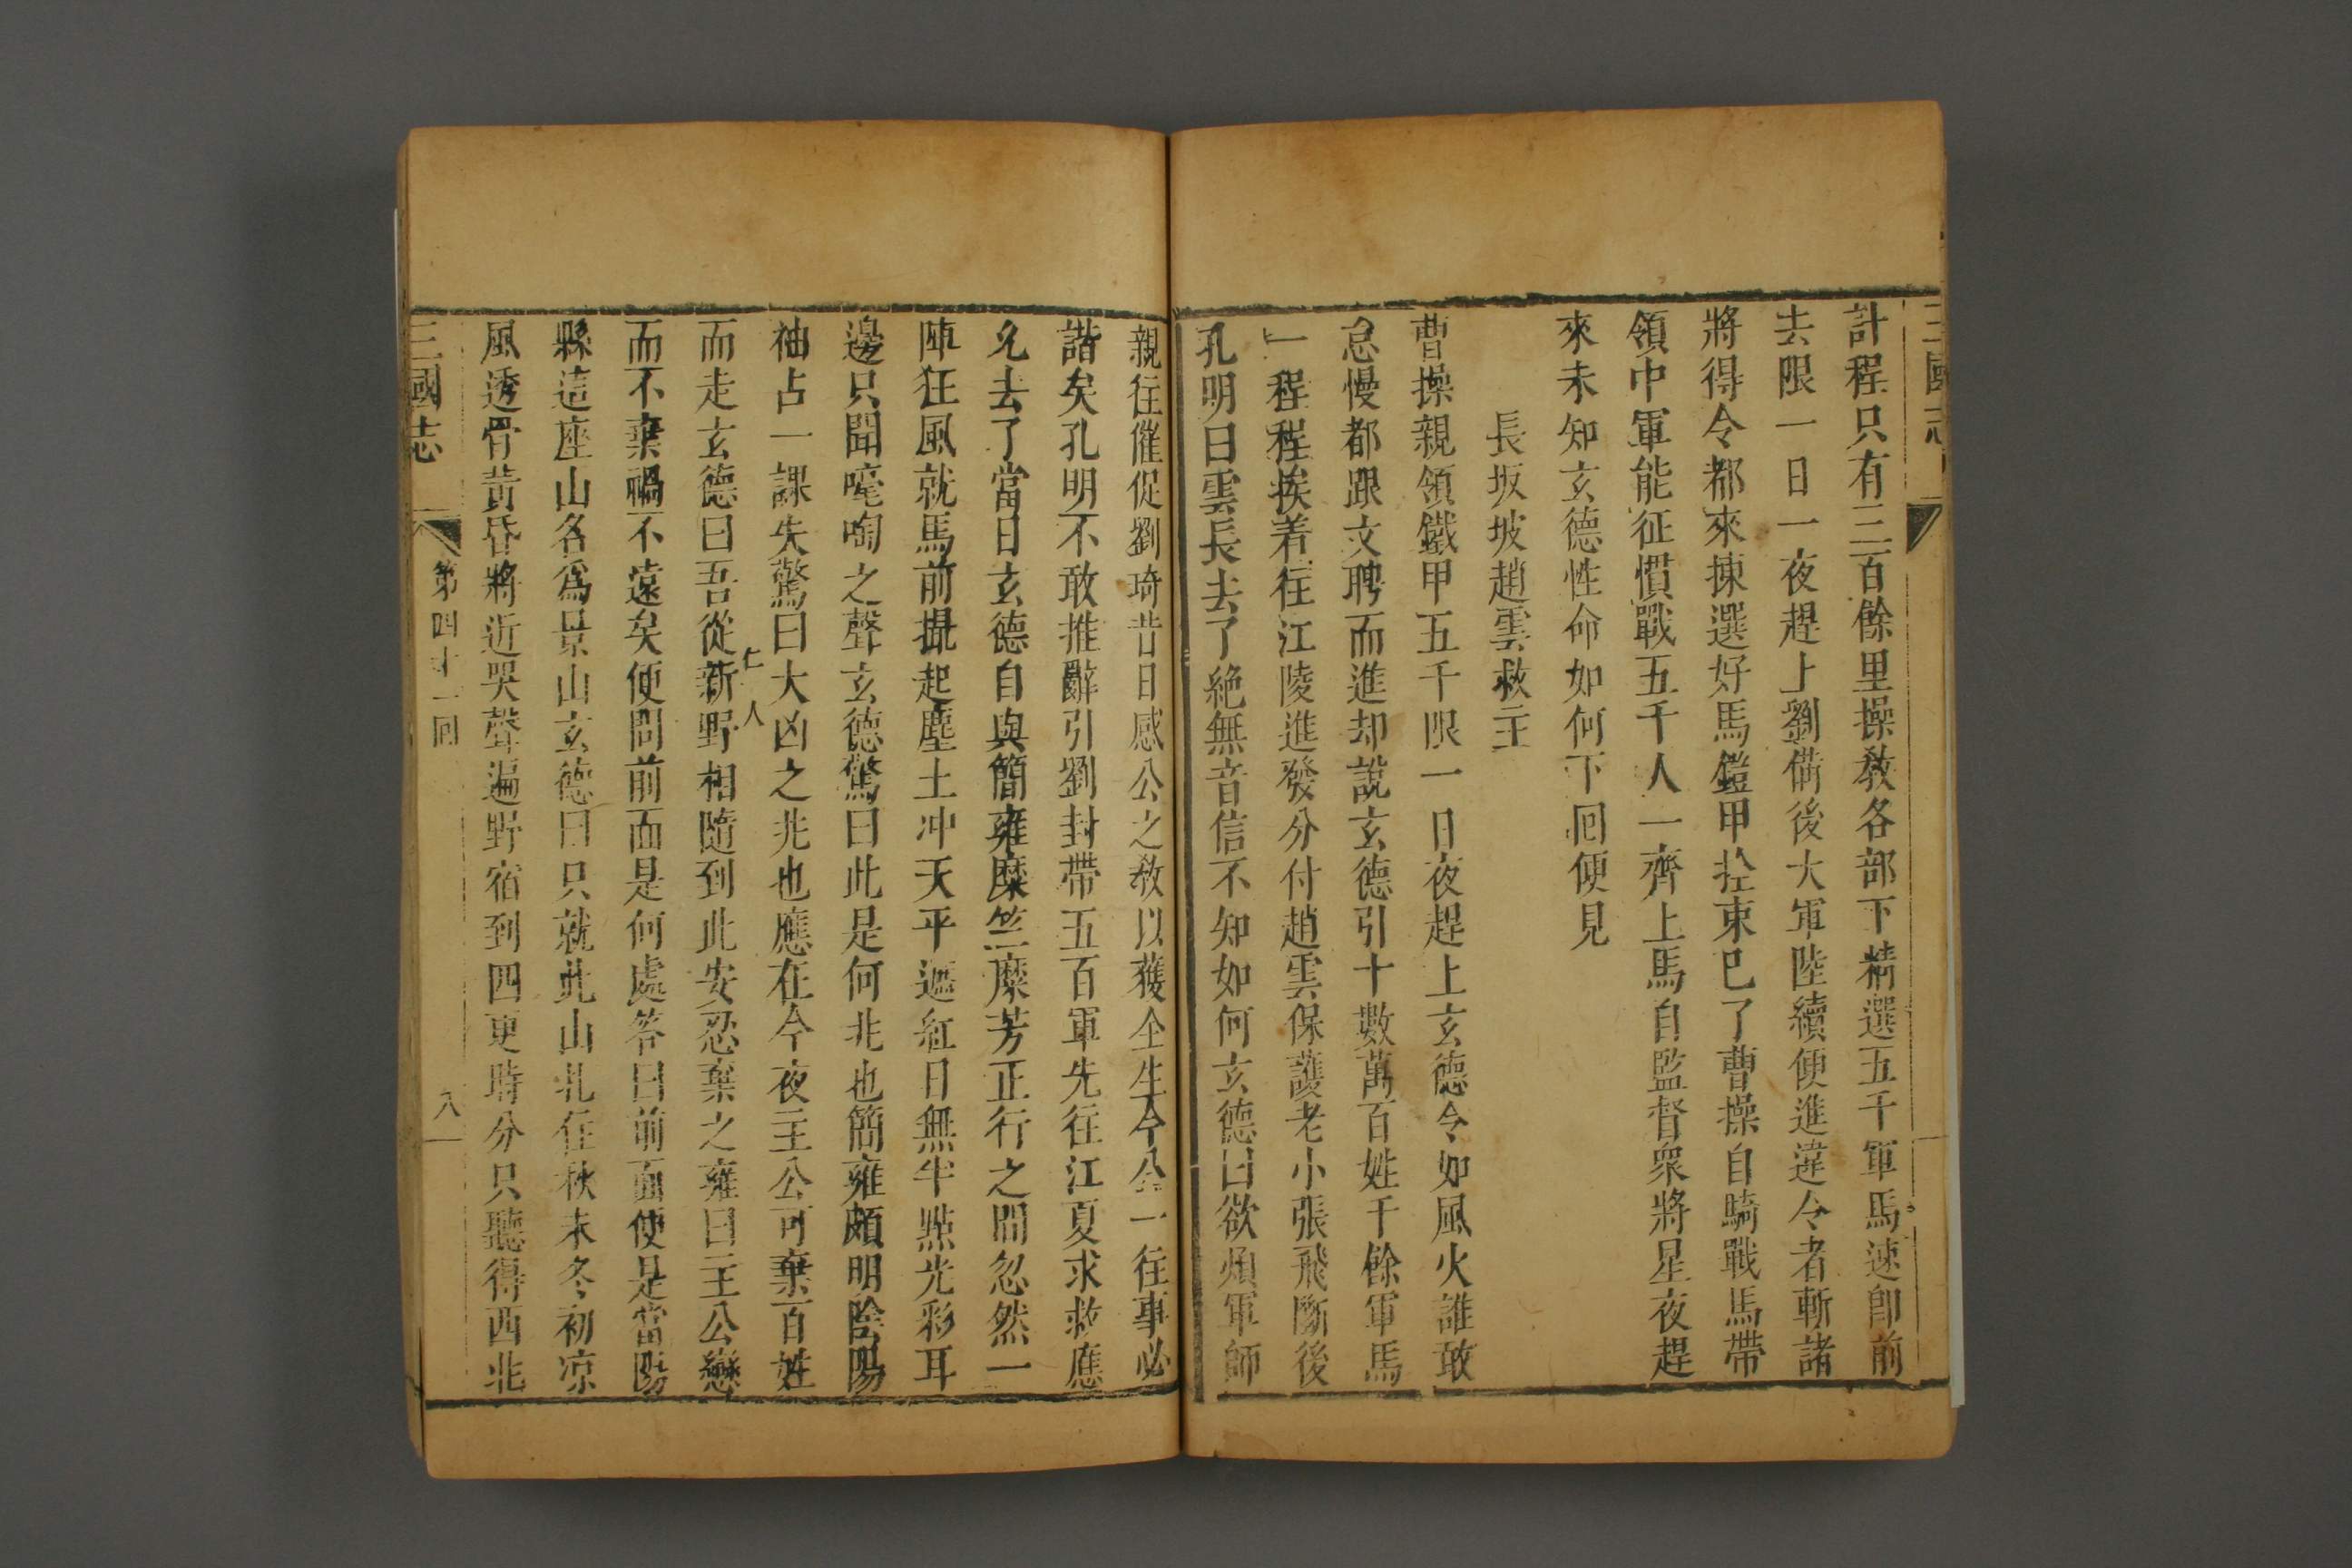 三國志
計程只有三百餘里操教各部下精選五千軍馬速即前
去限一日一夜趕上劉備後大軍陸續便進違令者斬諸
將得令都來揀選好馬鎧甲拴束已了曹操自騎戰馬帶
領中軍能征慣戰五千人一齊上馬自監督衆將星夜趕
來未知玄德性命如何下回便見
長坂坡趙雲救主
曹操親領鐵甲五千限一日夜趕上玄德令如風火誰敢
怠慢都跟文聘而進却說玄德引十數萬百姓千餘軍馬
一程程挨着往江陵進發分付趙雲保護老小張飛斷後
孔明曰雲長去了絶無音信不知如何玄德曰欲煩軍師
親往催促劉琦昔日感公之教以獲全生今公一往事必
諧矣孔明不敢推辭引劉封帶五百軍先往江夏求救應
允去了當日玄德自與簡雍糜竺糜芳正行之間忽然一
陣狂風就馬前掇起塵土冲天平遮紅日無半點光彩耳
邊只聞嚎啕之聲玄德驚曰此是何兆也簡雍頗明陰陽
袖占一課失驚曰大凶之兆也應在今夜主公可棄百姓
而走玄德曰吾從新野相隨到此安忍棄之雍曰主公戀
仁人
而不棄禍不遠矣便問前面是何處答曰前面便是當陽
縣這座山名爲景山玄德曰只就此山扎住秋末冬初凉
風透骨黄昏將近哭聲遍野宿到四更時分只聽得西北
三國志 第四十一回 八